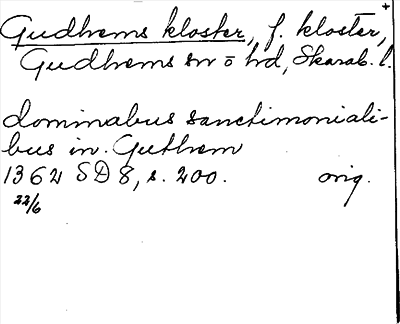 +
Gudhems kloster, f. kloster,
Gudhems sn o hd, Skarab. l.
dominabus sanctimoniali-
bus in Guthem
1362 SD 8, s. 200. orig.
22/6